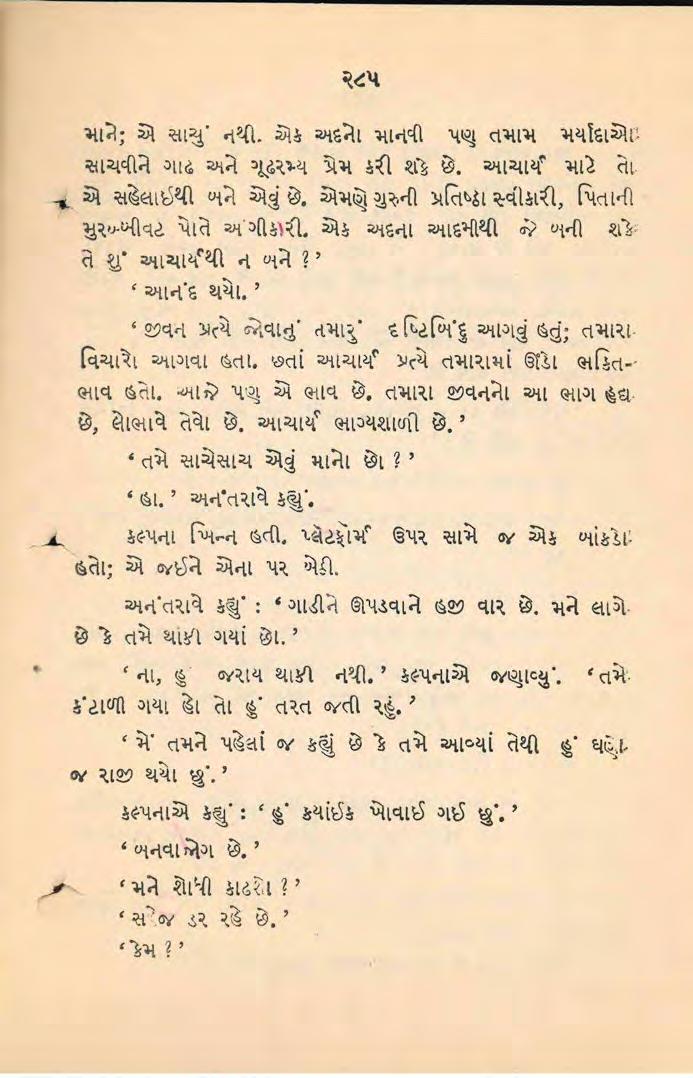 ૨૮૫
માને; એ સાચું નથી. એક અદનો માનવી પણ તમામ મર્યાદાઓ
સાચવીને ગાઢ અને ગૂઢરમ્ય પ્રેમ કરી શકે છે. આચાર્ય માટે તો
એ સહેલાઈથી બને એવું છે. એમણે ગુરુની પ્રતિષ્ઠા સ્વીકારી, પિતાની
મુરબ્બીવટ પોતે અંગીકારી. એક અદના આદમીથી જે બની શકે
તે શું આચાર્યથી ન બને ?’
‘ આનંદ થયો. ’
‘ જીવન પ્રત્યે જોવાનું તમારું દૃષ્ટિબિંદુ આગવું હતું; તમારા
વિચારો આગવા હતા. છતાં આચાર્ય પ્રત્યે તમારામાં ઊંડો ભક્તિ-
ભાવ હતો. આજે પણ એ ભાવ છે. તમારા જીવનનો આ ભાગ હૃદ્ય
છે, લોભાવે તેવો છે. આચાર્ય ભાગ્યશાળી છે. ’
‘ તમે સાચેસાચ એવું માનો છો ? ’
‘ હા. ’ અનંતરાવે કહ્યું.
કલ્પના ખિન્ન હતી. પ્લૅટફૉર્મ ઉપર સામે જ એક બાંકડો
હતો; એ જઈને એના પર બેઠી.
અનંતરાવે કહ્યું : ‘ ગાડીને ઊપડવાને હજી વાર છે. મને લાગે
છે કે તમે થાકી ગયાં છો. ’
‘ ના, હું જરાય થાકી નથી. ’ કલ્પનાએ જણાવ્યું. ‘ તમે
કંટાળી ગયા હો તો હું તરત જતી રહું. ’
‘ મેં તમને પહેલાં જ કહ્યું છે કે તમે આવ્યાં તેથી હું ઘણો
જ રાજી થયો છું. ’
કલ્પનાએ કહ્યું : ‘ હું ક્યાંઈક ખોવાઈ ગઈ છું. ’
‘ બનવાજોગ છે. ’
‘ મને શોધી કાઢશો ? ’
‘ સહેજ ડર રહે છે. ’
‘ કેમ ? ’